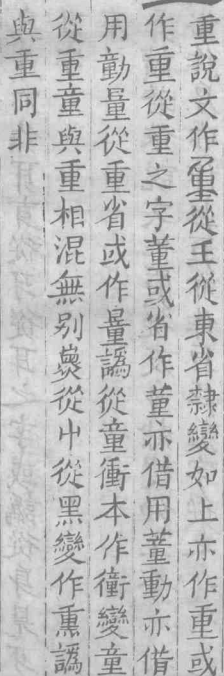 重說文作𡍴從王從東省隸變如上亦作重或
作重從重之字董或省作蕫亦借用董動亦借
用勭量從重省或作量譌從童衝本作衝變童
從重童與重相混無別㷱從屮從黑變作熏譌
與重同非